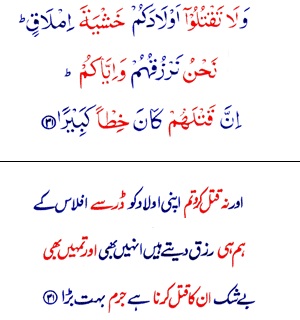 وَلَا تَقْتُلُوْۤا اَوْلَادَكُمْ خَشْيَةَ اِمْلَاقٍ ؕ
نَحْنُ نَرْزُقُهُمْ وَاِيَّاكُمْ ؕ
اِنَّ قَتْلَهُمْ كَانَ خِطْاً كَبِيْرًا ﴿۳۱﴾
اور نہ قتل کرو تم اپنی اولاد کو ڈر سے افلاس کے
ہم ہی رزق دیتے ہیں انہیں بھی اور تمہیں بھی
بے شک ان کا قتل کرنا ہے جرم بہت بڑا ﴿۳۱﴾